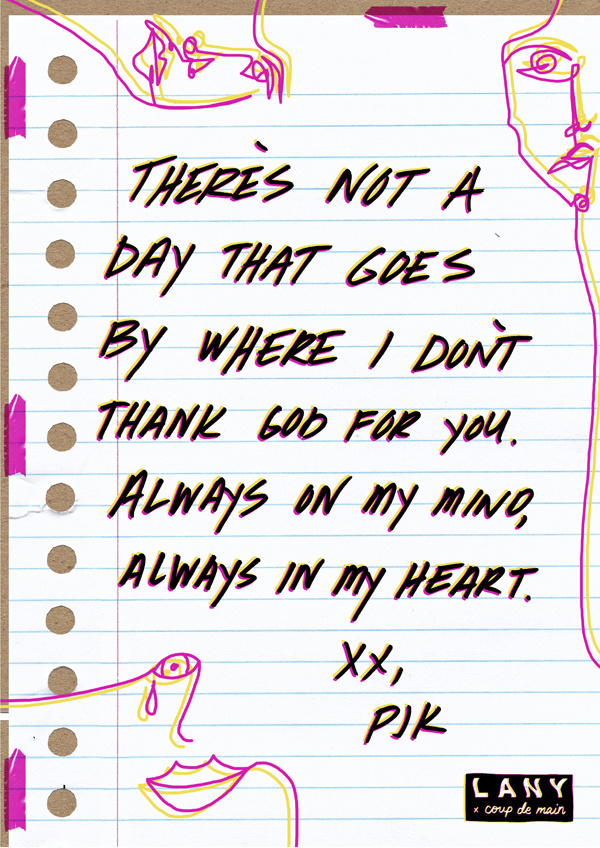 THERE'S NOT A
DAY THAT GOES
BY WHERE I DON'T
THANK GOD FOR YOU.
ALWAYS ON MY MIND,
ALWAYS IN MY HEART.
XX,
PJK
LANY
x coup de main